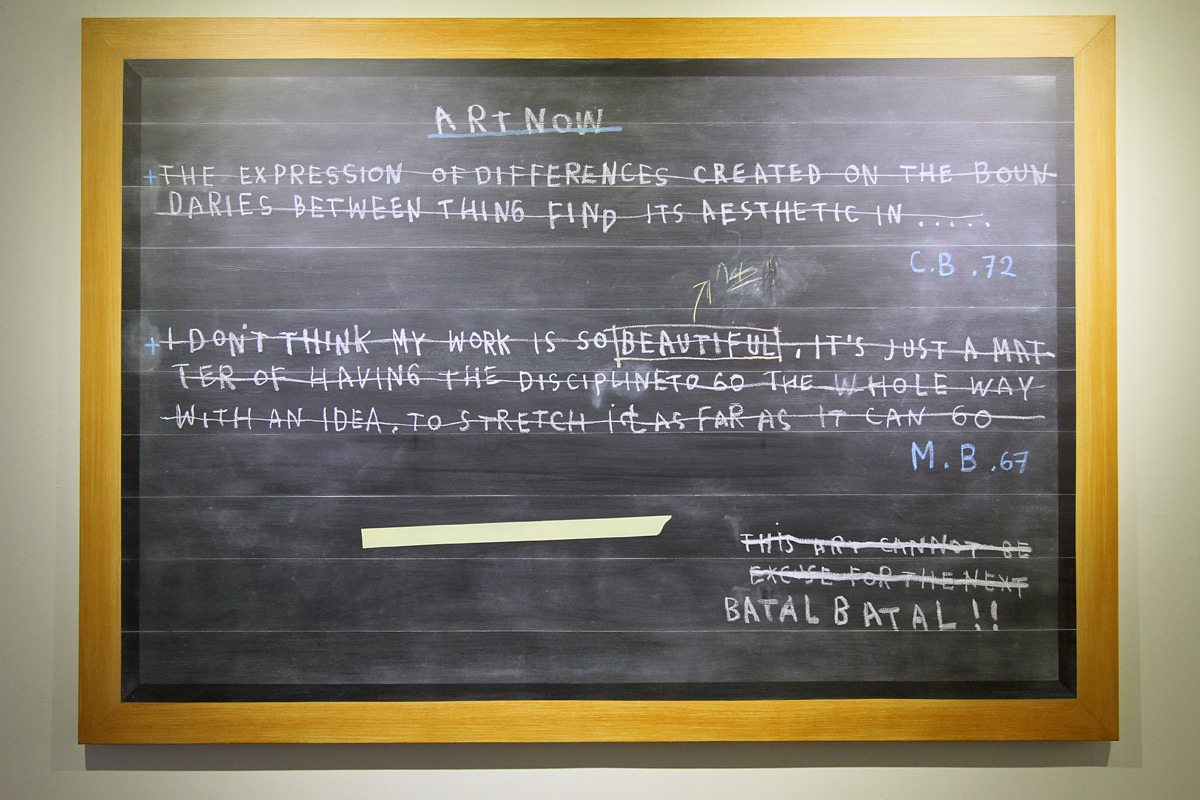 ART NOW
+ THE EXPRESSION OF DIFFERENCES CREATED ON THE BOUN
DARIES BETWEEN THING FIND ITS AESTHETIC IN .....
C.B .72
+ I DON'T THINK MY WORK IS SO BEAUTIFUL, IT'S JUST A MAT
TER OF HAVING THE DISCIPLINE TO GO THE WHOLE WAY
WITH AN IDEA, TO STRETCH it AS FAR AS IT CAN GO
M.B .67
THiS ART CANNOT BE
EXCUSE FOR THE NEXT
BATAL BATAL!!